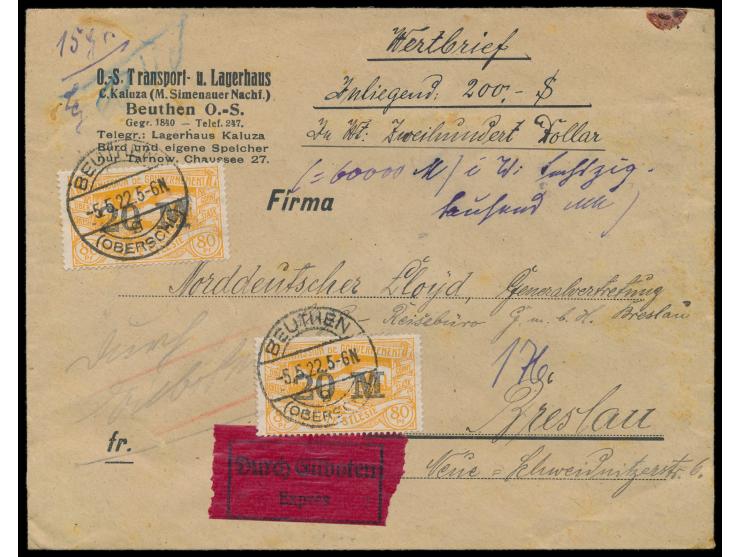 15 gr
Wertbrief
Inliegend: 200,- $
In W: Zweihundert Dollar
(= 60000 M) i W: Sechzig-
tausend Mk)
O.-S. Transport- u. Lagerhaus
C. Kaluza (M. Simenauer Nachf.)
Beuthen O.-S.
Gegr. 1840 — Telef. 247.
Telegr.: Lagerhaus Kaluza
Büro und eigene Speicher
nur Tarnow. Chaussee 27.
BEUTHEN
-5.5.22.5-6N
(OBERSCHL)
20 M
80
Firma
Norddeutscher Lloyd, Generalvertretung
Reisebüro G. m. b. H. Breslau
Durch
BEUTHEN
-5.5.22.5-6N
(OBERSCHL)
COMMISSION DE GOUVERNEMENT
20 M
80
SILESIE
Breslau
fr.
Neue-Schweidnitzerstr. 6.
Durch Eilboten
Exprès